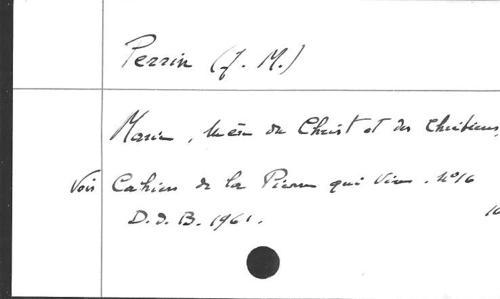 Perrin (J. M.)
Marie, Mère du Christ et des Chrétiens,
Voir Cahiers de la Pierre qui Vire. N°16
D.d.B. 1961.
16